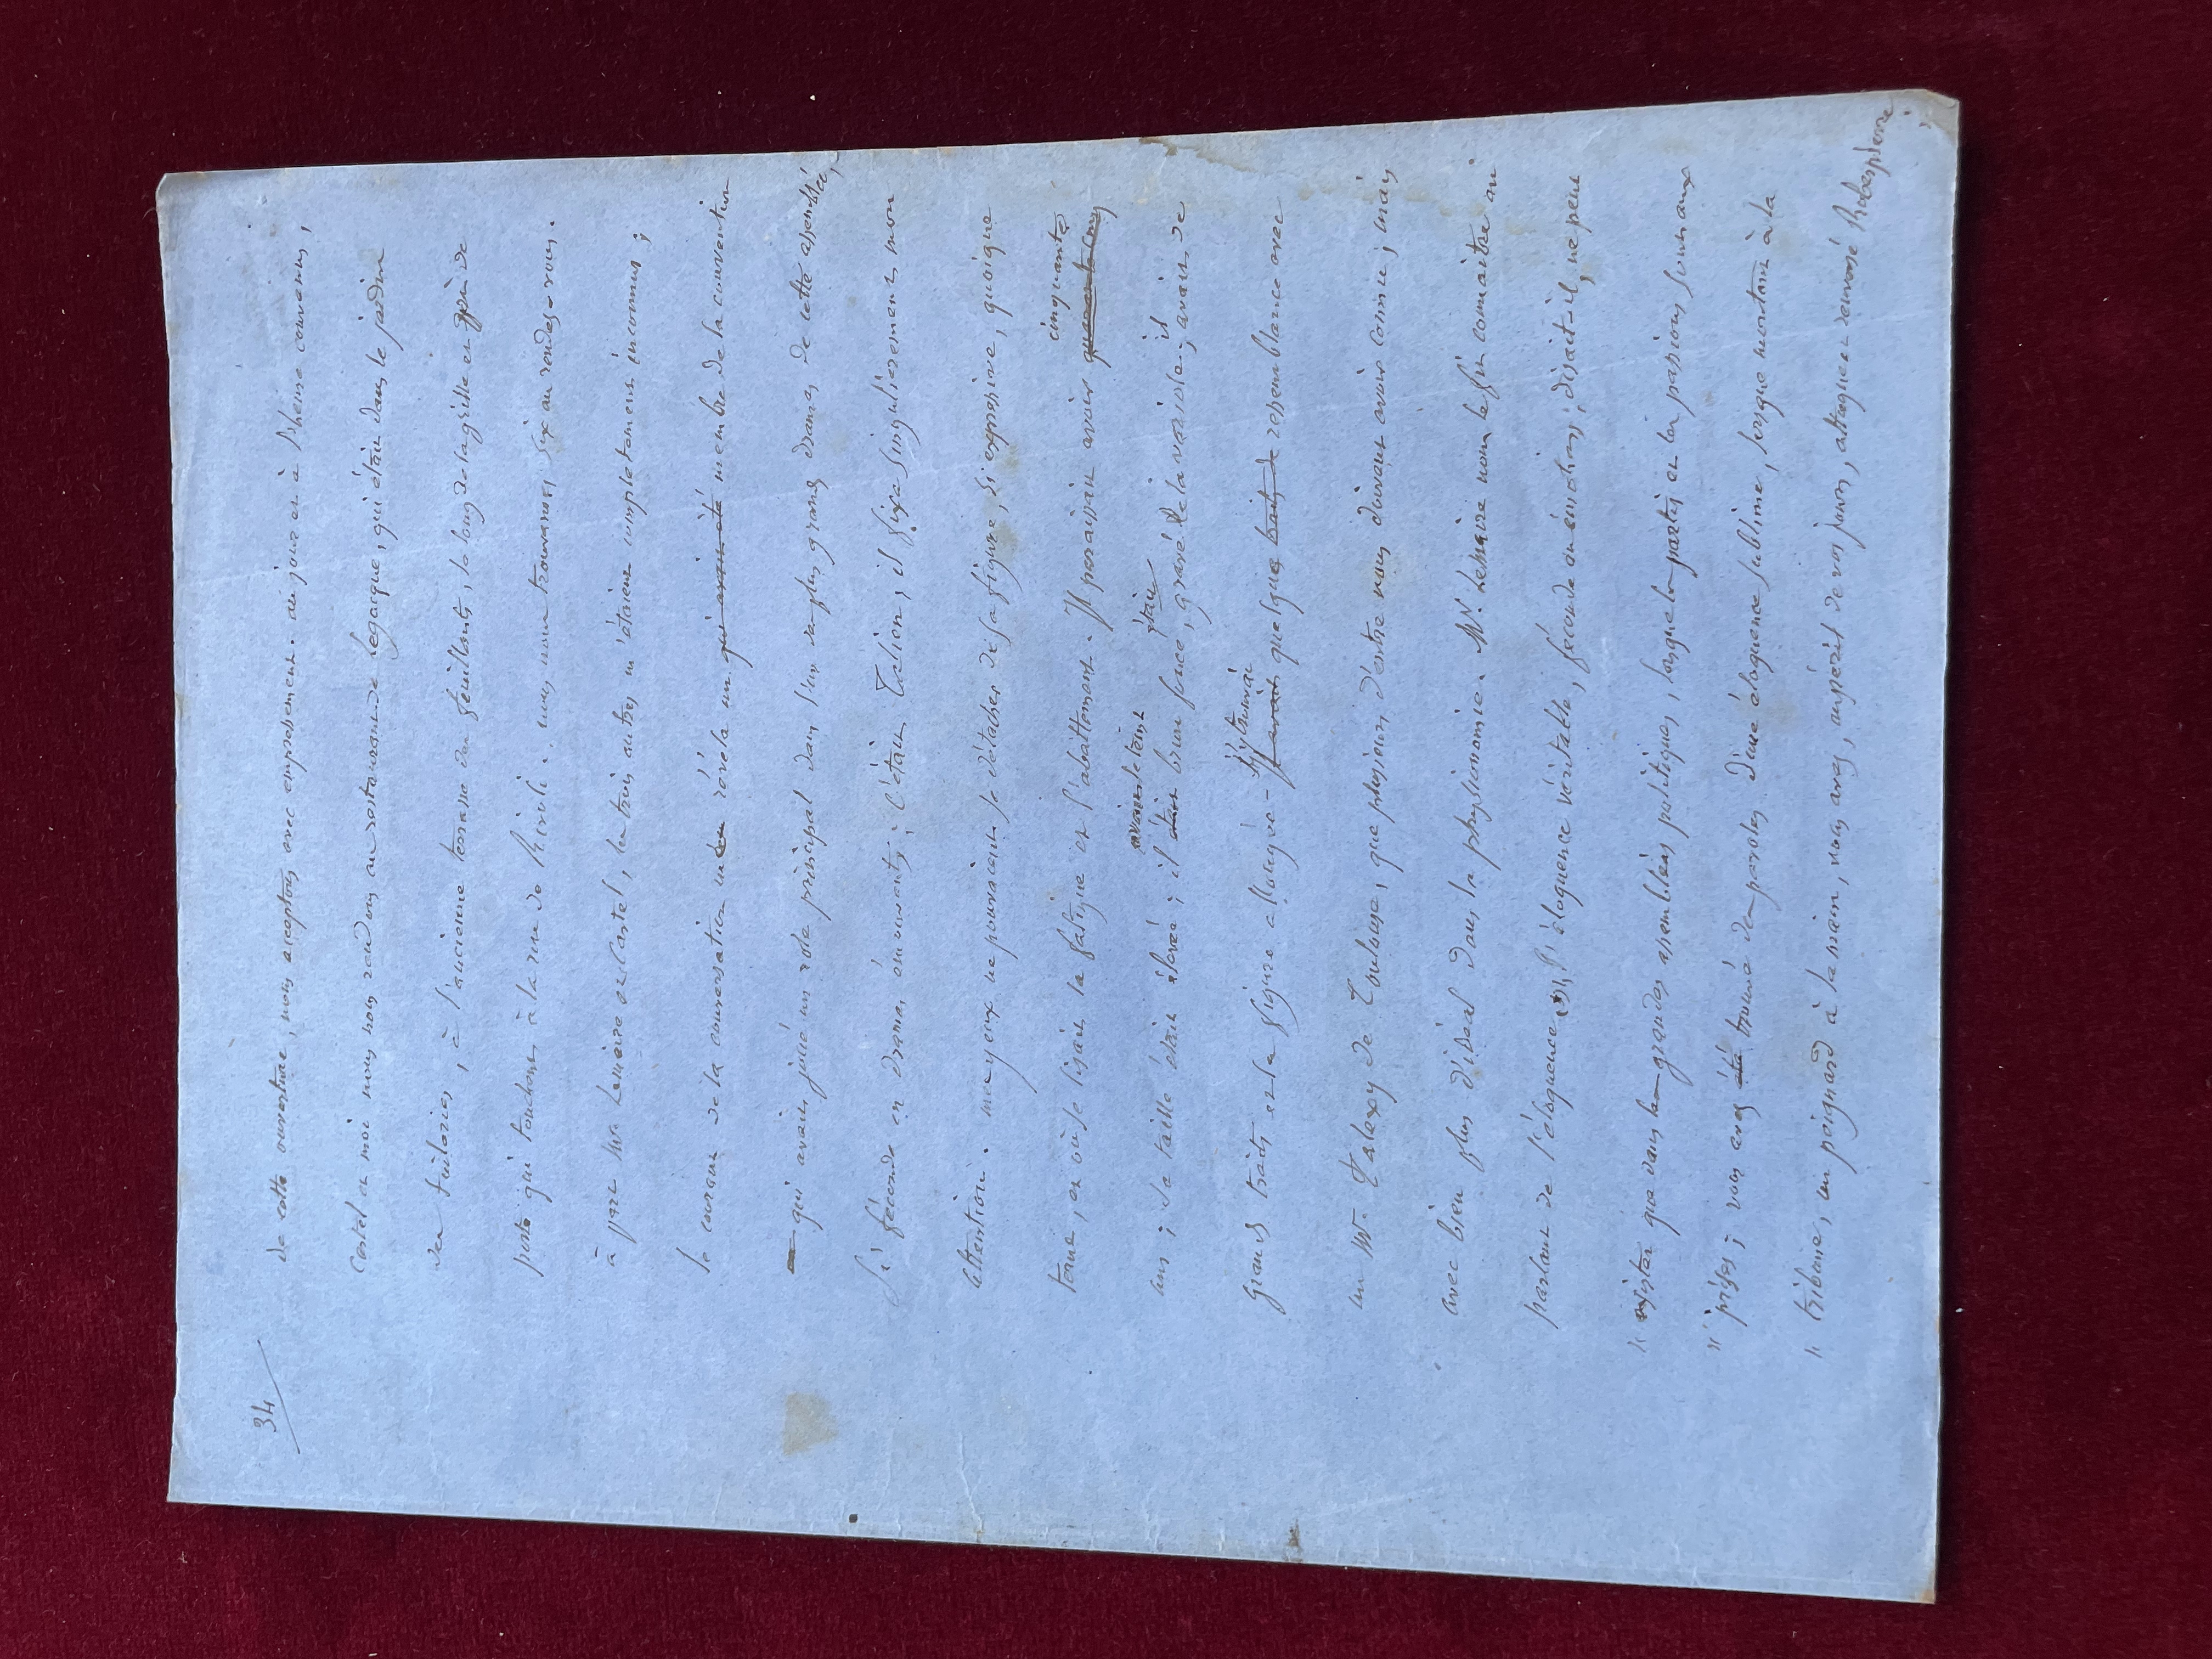 34
de cette ouverture, nous acceptons avec empressement. au jour et à l'heure convenus,
Castel et moi nous nous rendons au restaurant de Legacque, qui était dans le jardin
des tuileries, à l'ancienne terrasse des feuillants, le long de la grille en
porte qui touchent à la rue de Rivoli. nous nous trouvames six au rendez-vous.
à part Mr. Lemaire et Castel, les trois autres m'étaient complètement inconnus ;
le courant de la conversation m'en révéla un qui avait été membre de la convention
qui avait joué un role principal dans l'un des plus grands drames de cette assemblée,
si féconde en drames émouvants ; C'était Talien, il fixa singulièrement mon
attention. mes yeux ne pouvaient se détacher de sa figure, si expressive, quoique
terne, et où se lisait la fatigue et l'abattement. Il paraissait avoir quarante cinq
cinquante
ans ; sa taille était élevée ; il était brun foncé, gravé de la vérole ; avait de
avait le teint
était
il
grands traits et la figure allongée - J'avais quelque beaucoup de ressemblance avec
j'y trouvai
un Mr. Talexy de Toulouse, que plusieurs d'entre vous doivent avoir connu ; mais
avec bien plus d'idéal dans la physionomie. Mr. Lemaire nous le fit connaitre en
parlant de l'éloquence ; "l'éloquence véritable, féconde en émotions, disait-il, ne peut
" exister que dans les grandes assemblées politiques, lorsque les partis et les passions sont aux
" prises ; vous avez été trouvé des paroles d'une éloquence sublime, lorsque montant à la
" tribune, un poignard à la main, vous avez, au péril de vos jours, attaqué et renversé Robespierre ;